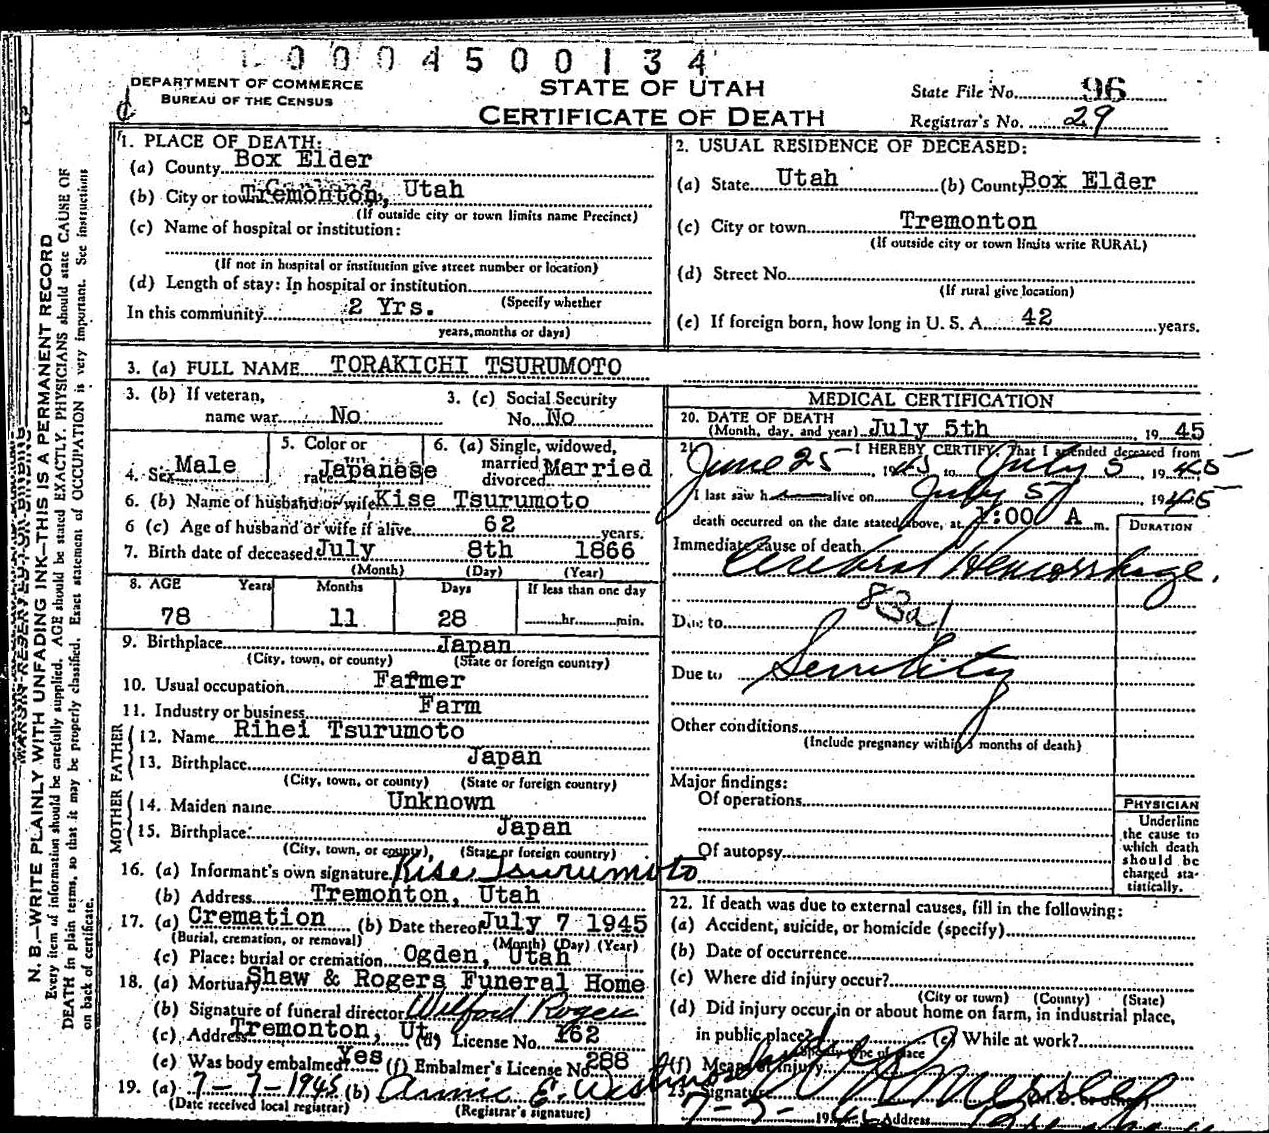 0004500134
DEPARTMENT OF COMMERCE
BUREAU OF THE CENSUS
STATE OF UTAH
CERTIFICATE OF DEATH
State File No. 96
Registrar's No. 29
N. B.—WRITE PLAINLY WITH UNFADING INK—THIS IS A PERMANENT RECORD
Every item of information should be carefully supplied. AGE should be stated EXACTLY. PHYSICIANS should state CAUSE OF
DEATH in plain terms, so that it may be properly classified. Exact statement of OCCUPATION is very important. See instructions
on back of certificate.
MARGIN RESERVED FOR BINDING
1. PLACE OF DEATH:
(a) County Box Elder
(b) City or town Tremonton, Utah
(If outside city or town limits name Precinct)
(c) Name of hospital or institution:
(If not in hospital or institution give street number or location)
(d) Length of stay: In hospital or institution
(Specify whether
In this community 2 Yrs.
years, months or days)
2. USUAL RESIDENCE OF DECEASED:
(a) State Utah (b) County Box Elder
(c) City or town Tremonton
(If outside city or town limits write RURAL)
(d) Street No.
(If rural give location)
(e) If foreign born, how long in U. S. A. 42 years.
3. (a) FULL NAME TORAKICHI TSURUMOTO
3. (b) If veteran,
name war No
3. (c) Social Security
No. No
4. Sex Male
5. Color or
race Japanese
6. (a) Single, widowed,
married
divorced Married
6. (b) Name of husband or wife Kise Tsurumoto
6 (c) Age of husband or wife if alive 62 years.
7. Birth date of deceased July 8th 1866
(Month) (Day) (Year)
8. AGE Years Months Days If less than one day
78 11 28 hr. min.
9. Birthplace Japan
(City, town, or county) (State or foreign country)
10. Usual occupation Farmer
11. Industry or business Farm
FATHER
12. Name Rihei Tsurumoto
13. Birthplace Japan
(City, town, or county) (State or foreign country)
MOTHER
14. Maiden name Unknown
15. Birthplace Japan
(City, town, or county) (State or foreign country)
16. (a) Informant's own signature Kise Tsurumoto
(b) Address Tremonton, Utah
17. (a) Cremation (b) Date thereof July 7 1945
(Burial, cremation, or removal) (Month) (Day) (Year)
(c) Place: burial or cremation Ogden, Utah
18. (a) Mortuary Shaw & Rogers Funeral Home
(b) Signature of funeral director Wilford Rogers
(c) Address Tremonton, Ut. (d) License No. 162
(e) Was body embalmed? Yes (f) Embalmer's License No. 288
19. (a) 7-7-1945 (b) Annie E.
(Date received local registrar) (Registrar's signature)
MEDICAL CERTIFICATION
20. DATE OF DEATH
(Month, day, and year) July 5th, 1945
21. I HEREBY CERTIFY, That I attended deceased from
June 25, 1945 to July 5, 1945
I last saw h alive on July 5, 1945
death occurred on the date stated above, at 1:00 A m.
DURATION
Immediate cause of death
Cerebral Hemorrhage.
83a1
Due to
Due to Senility
Other conditions
(Include pregnancy within 3 months of death)
Major findings:
Of operations
Of autopsy
PHYSICIAN
Underline
the cause to
which death
should be
charged sta-
tistically.
22. If death was due to external causes, fill in the following:
(a) Accident, suicide, or homicide (specify)
(b) Date of occurrence
(c) Where did injury occur?
(City or town) (County) (State)
(d) Did injury occur in or about home on farm, in industrial place,
in public place? (e) While at work?
(Specify type of place
(f) Means of injury
23. Signature (M.D. or other)
Address